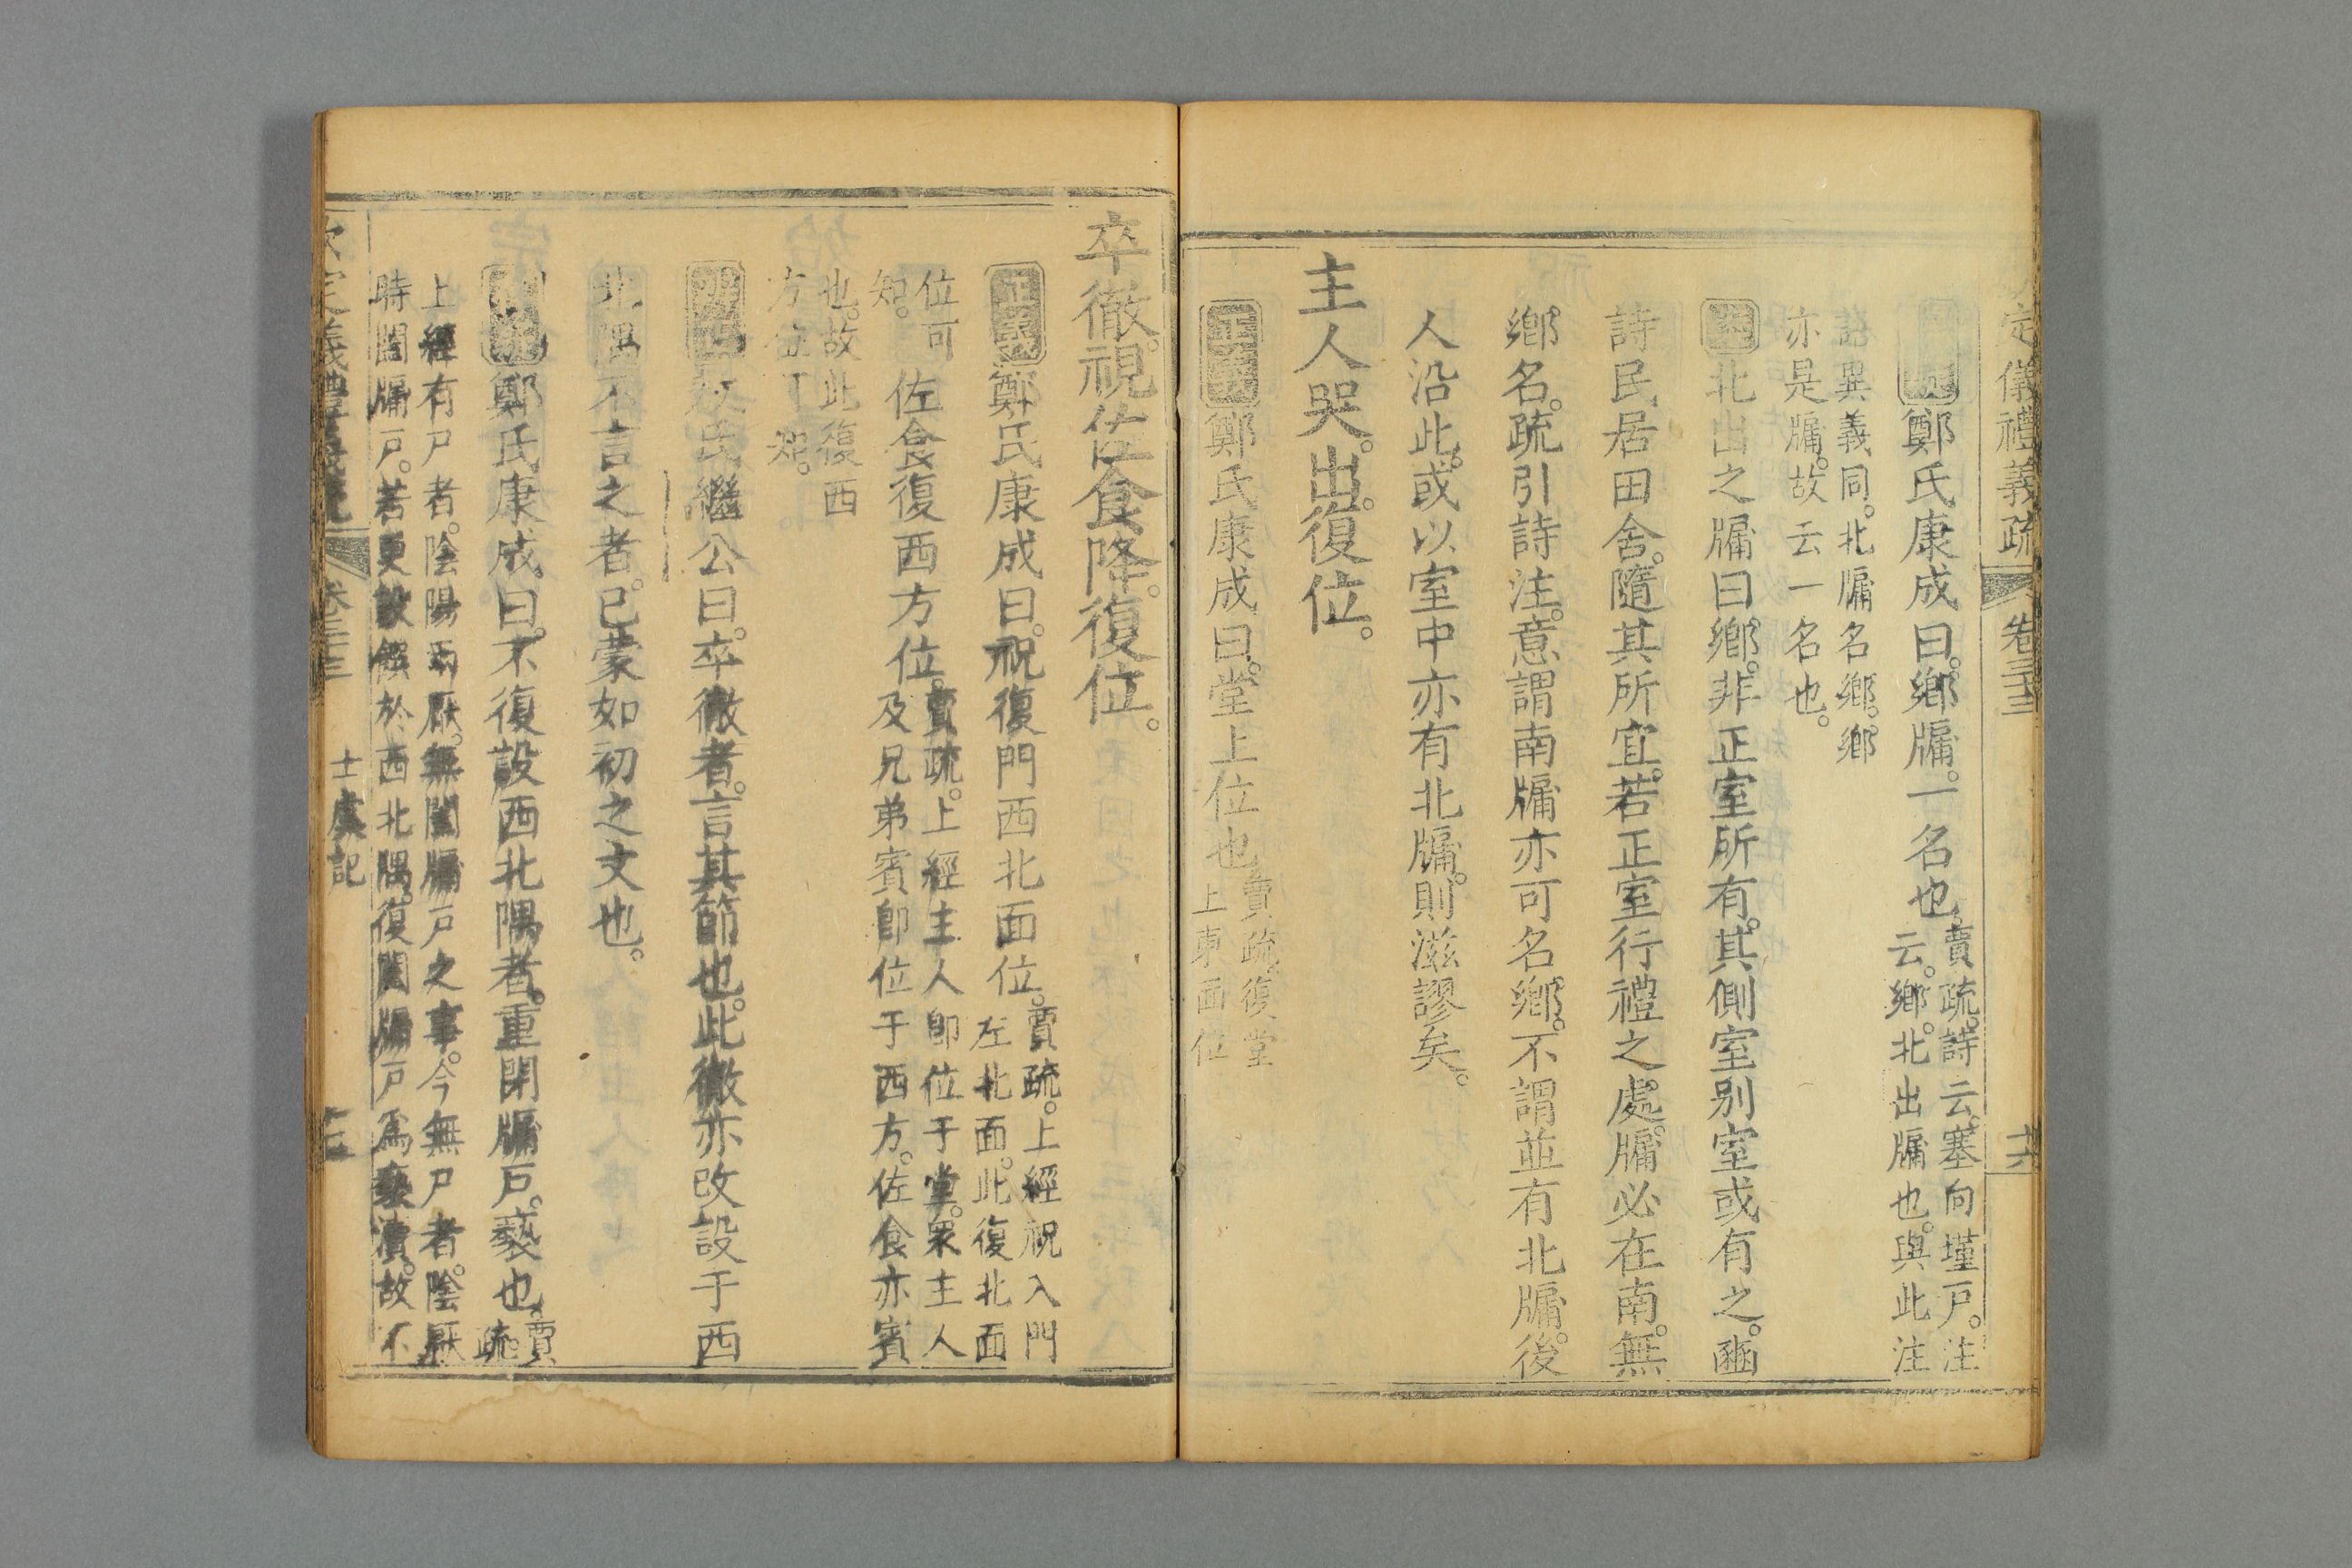 定儀禮義疏 卷三十三 十六
鄭氏康成曰鄉牖一名也賈疏詩云塞向墐戸注
云鄉北出牖也與此注
語異義同北牖名鄉鄉
亦是牖故云一名也
北出之牖曰鄉非正室所有其側室别室或有之豳
詩民居田舍隨其所宜若正室行禮之處牖必在南無
鄉名疏引詩注意謂南牖亦可名鄉不謂並有北牖後
人沿此或以室中亦有北牖則滋謬矣
主人哭出復位
正義鄭氏康成曰堂上位也賈疏復堂
上東面位
卒徹祝佐食降復位
正義鄭氏康成曰祝復門西北面位賈疏上經祝入門
左北面此復北面
位可
知
佐食復西方位賈疏上經主人卽位于堂衆主人
及兄弟賓卽位于西方佐食亦賓
也故此復西
方位可知
敖氏繼公曰卒徹者言其節也此徹亦改設于西
北隅不言之者已蒙如初之文也
鄭氏康成曰不復設西北隅者重閉牖戸褻也賈
疏
上經有尸者陰陽兩厭無闔牖戸之事今無尸者陰厭
時闔牖戸若更設饌於西北隅復闔牖戸爲褻瀆故不
儀禮義疏 卷三十三 士虞記